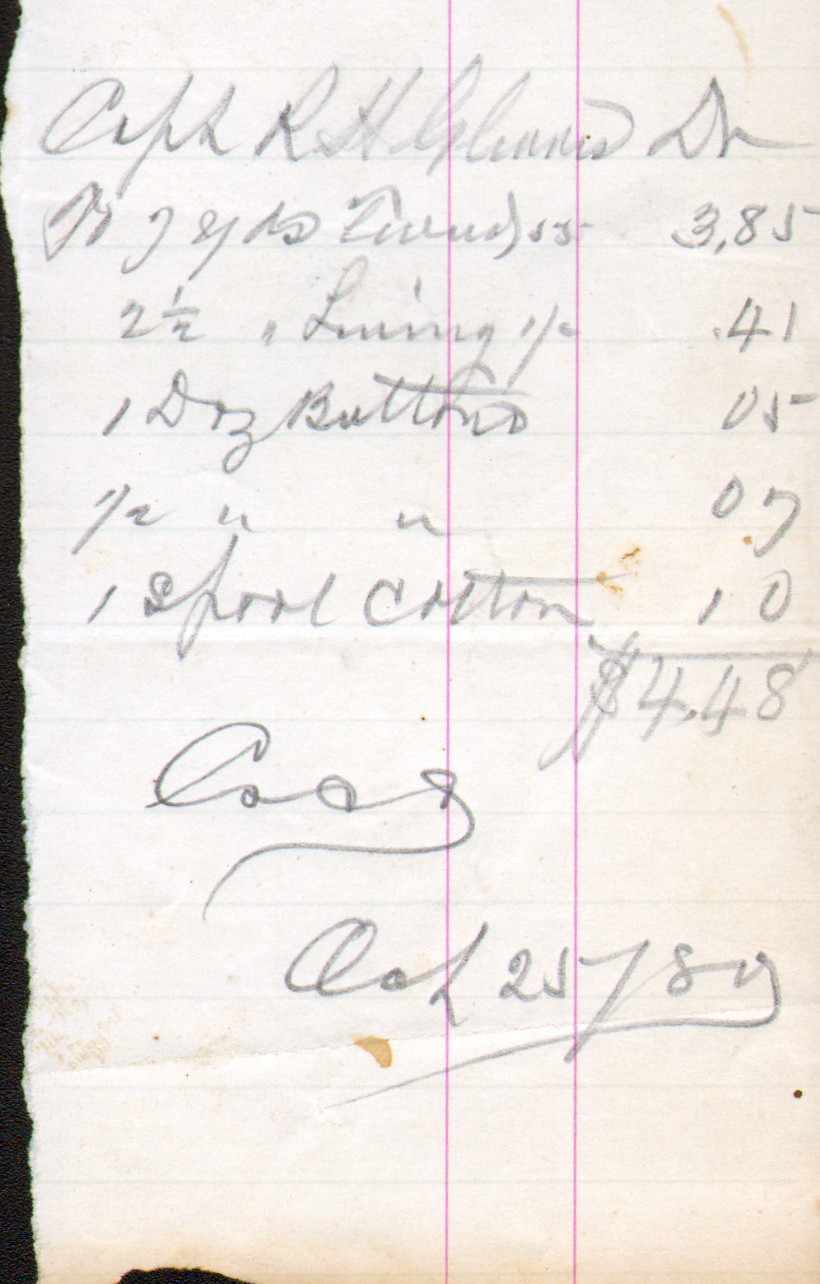 Capt R H Glennis Dr
To 7 yds Tweed 55 3,85
2 1/2 " Lining 1/- .41
1 Doz Buttons 05
1/2 " " 07
1 Spool Cotton 10
$4.48
Oct 25/89